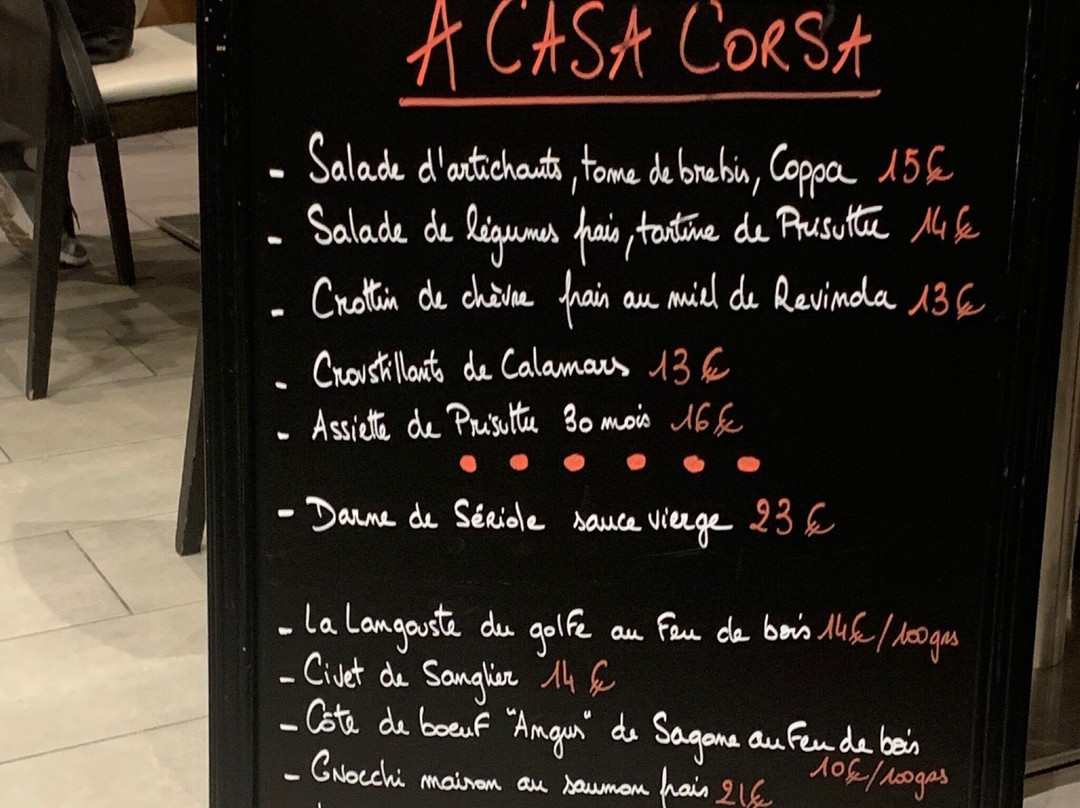 A CASA CORSA
- Salade d'artichauts, tome de brebis, Coppa 15€
- Salade de légumes frais, tartine de Prisuttu 14€
- Crottin de chèvre frais au miel de Revinda 13€
- Croustillants de Calamars 13€
- Assiette de Prisuttu 30 mois 16€
- Darne de Sériole sauce vierge 23€
- La Langouste du golfe au Feu de bois 14€/100grs
- Civet de Sanglier 14€
- Côte de boeuf "Angus" de Sagone au Feu de bois
10€/100grs
- Gnocchi maison au saumon frais 21€